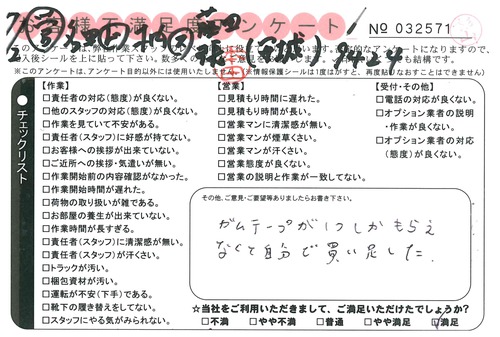 お客様不満足度アンケート
No 032571
※このアンケートは、アンケート目的以外には使用いたしません。（※情報保護シールは1度はがすと、再度貼りなおすことはできません）
チェックリスト
【作業】
□責任者の対応（態度）が良くない。
□他のスタッフの対応（態度）が良くない。
□作業を見ていて不安がある。
□責任者（スタッフ）に好感が持てない。
□お客様への挨拶が出来ていない。
□ご近所への挨拶・気遣いが無い。
□作業開始前の内容確認がなかった。
□作業開始時間が遅れた。
□荷物の取り扱いが雑である。
□お部屋の養生が出来ていない。
□作業時間が長すぎる。
□責任者（スタッフ）に清潔感が無い。
□責任者（スタッフ）が汗くさい。
□トラックが汚い。
□梱包資材が汚い。
□運転が不安（下手）である。
□靴下の履き替えをしてない。
□スタッフにやる気がみられない。
【営業】
□見積もり時間に遅れた。
□見積もり時間が長い。
□営業マンに清潔感が無い。
□営業マンが煙草くさい。
□営業マンが汗くさい。
□営業態度が良くない。
□営業の説明と作業が一致してない。
【受付・その他】
□電話の対応が良くない。
□オプション業者の説明・作業が良くない。
□オプション業者の対応（態度）が良くない。
その他、ご意見・ご要望等ありましたらお書き下さい。
ガムテープが1つしかもらえ
なくて自分で買い足した。
☆当社をご利用いただきまして、ご満足いただけたでしょうか？
□不満 □やや不満 □普通 □やや満足 ☑満足